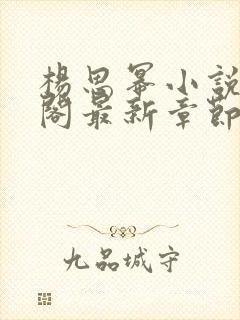 楊思冪小說
閣最新章節
九品城守